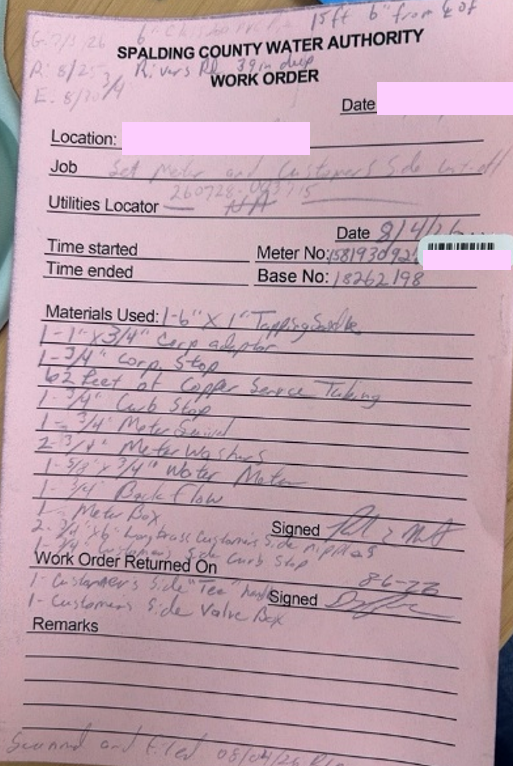 15ft 6" from
G. 7/3/26
SPALDING COUNTY WATER AUTHORITY
R: 8/25 3/4 Rivers Rd 39in deep
WORK ORDER
E. 8/30
Date
Location:
Job Set Meter and Customers Side cut-off
Utilities Locator NA
Date 8/4/26
Time started Meter No:
Time ended Base No: 18262198
Materials Used: 1-6" X 1" Tapping Saddle
1-1" X 3/4" Corp adaptor
1-3/4" Corp. Stop
62 Feet of Copper Service Tubing
1-3/4" Curb Stop
1-3/4" Meter
2-3/4" Meter Washers
1-5/8" X 3/4" Water Meter
1-3/4" Backflow
1- Meter Box
2-3/4" X6" Long brass Customers Side nipples
Signed
1-3/4" Customers Side Curb Stop
Work Order Returned On 8-6-
1- Customers Side "Tee"
Signed
1- Customers Side Valve Box
Remarks
Scanned and Filed 08/04/26